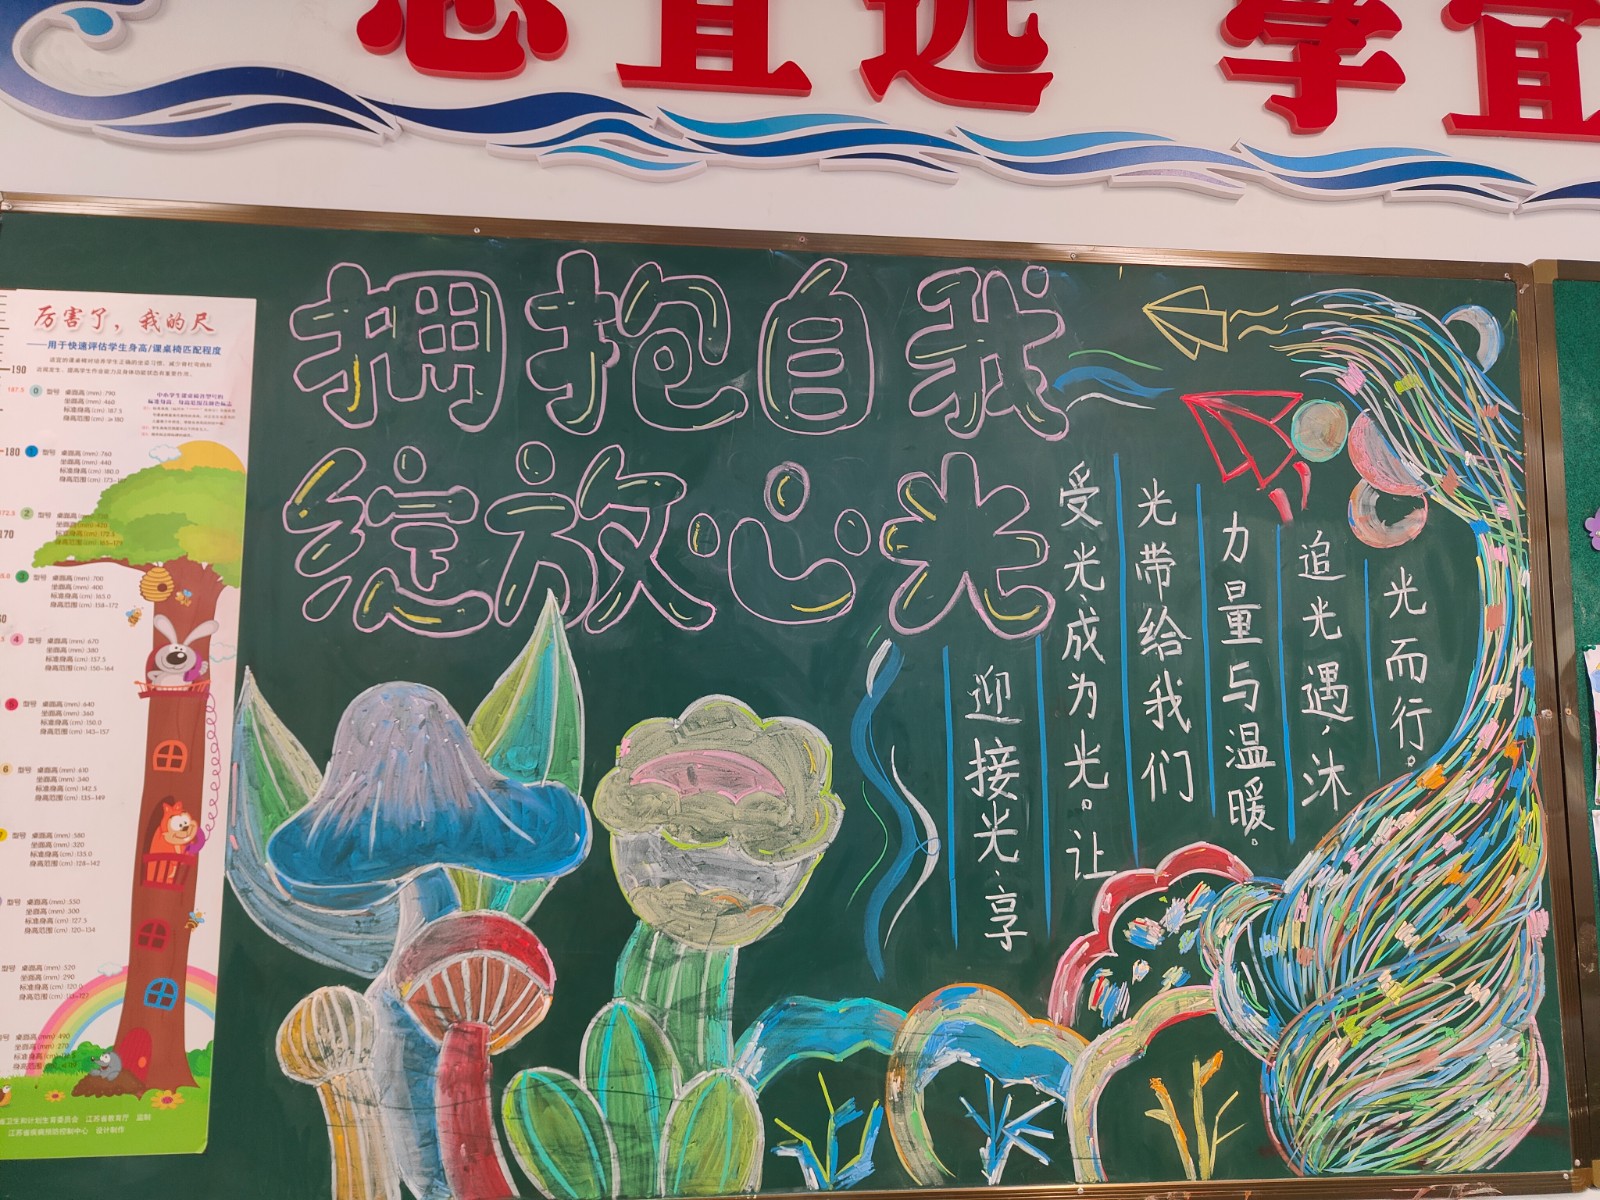 宜远 学宜
拥抱自我
绽放心光
迎接光,享
受光,成为光。让
光带给我们
力量与温暖。
追光遇,沐
光而行。
厉害了，我的尺
——用于快速评估学生身高/课桌椅匹配程度
190
187.5
0 型号 桌面高(mm):790
坐面高(mm):460
标准身高(cm):187.5
身高范围(cm):≥180
180
1 型号 桌面高(mm):760
坐面高(mm):440
标准身高(cm):180.0
172.5
2 型号 桌面高
170
3 型号 桌面高(mm):700
坐面高(mm):400
标准身高(cm):165.0
身高范围(cm):158-172
4 型号 桌面高(mm):670
坐面高(mm):380
标准身高(cm):157.5
身高范围(cm):150-164
5 型号 桌面高(mm):640
坐面高(mm):360
标准身高(cm):150.0
身高范围(cm):143-157
6 型号 桌面高(mm):610
坐面高(mm):340
标准身高(cm):142.5
身高范围(cm):135-149
型号 桌面高(mm):580
坐面高(mm):320
标准身高(cm):135.0
身高范围(cm):128-142
型号 桌面高(mm):550
坐面高(mm):300
标准身高(cm):127.5
身高范围(cm):120-134
型号 桌面高(mm):520
坐面高(mm):290
标准身高(cm):120.0
型号 桌面高(mm):490
坐面高(mm):270
卫生和计划生育委员会 江苏省教育厅 监制
江苏省疾病预防控制中心 设计制作